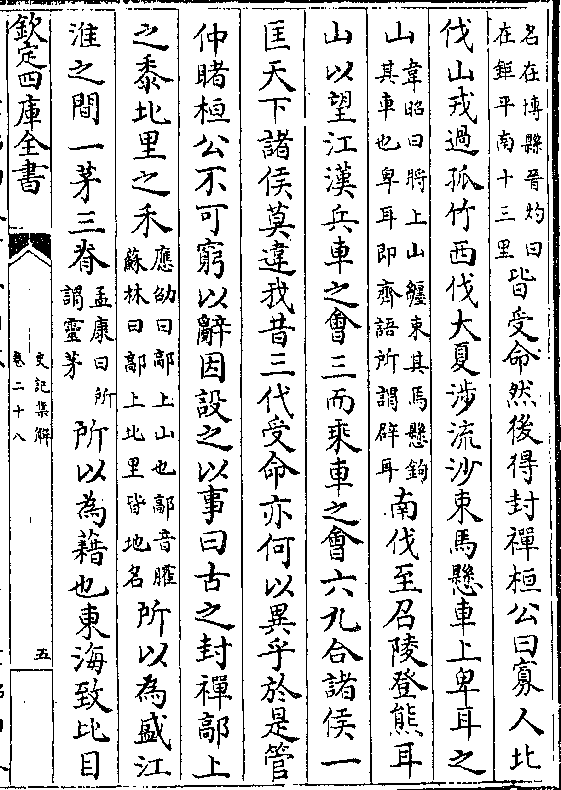 名在博縣晋灼曰
在鉅平南十三里
皆受命然後得封禪桓公曰寡人北
伐山戎過孤竹西伐大夏涉流沙束馬懸車上卑耳之
山
韋昭曰將上山纒束其馬懸鉤
其車也卑耳即齊語所謂辟耳
南伐至召陵登熊耳
山以望江漢兵車之會三而乘車之會六九合諸侯一
匡天下諸侯莫違我昔三代受命亦何以異乎於是管
仲睹桓公不可窮以辭因設之以事曰古之封禪鄗上
之黍北里之禾
應劭曰鄗上山也鄗音臛
蘇林曰鄗上北里皆地名
所以為盛江
淮之間一茅三脊
孟康曰所
謂靈茅
所以為藉也東海致比目
欽定四庫全書
史記集解
卷二十八
五